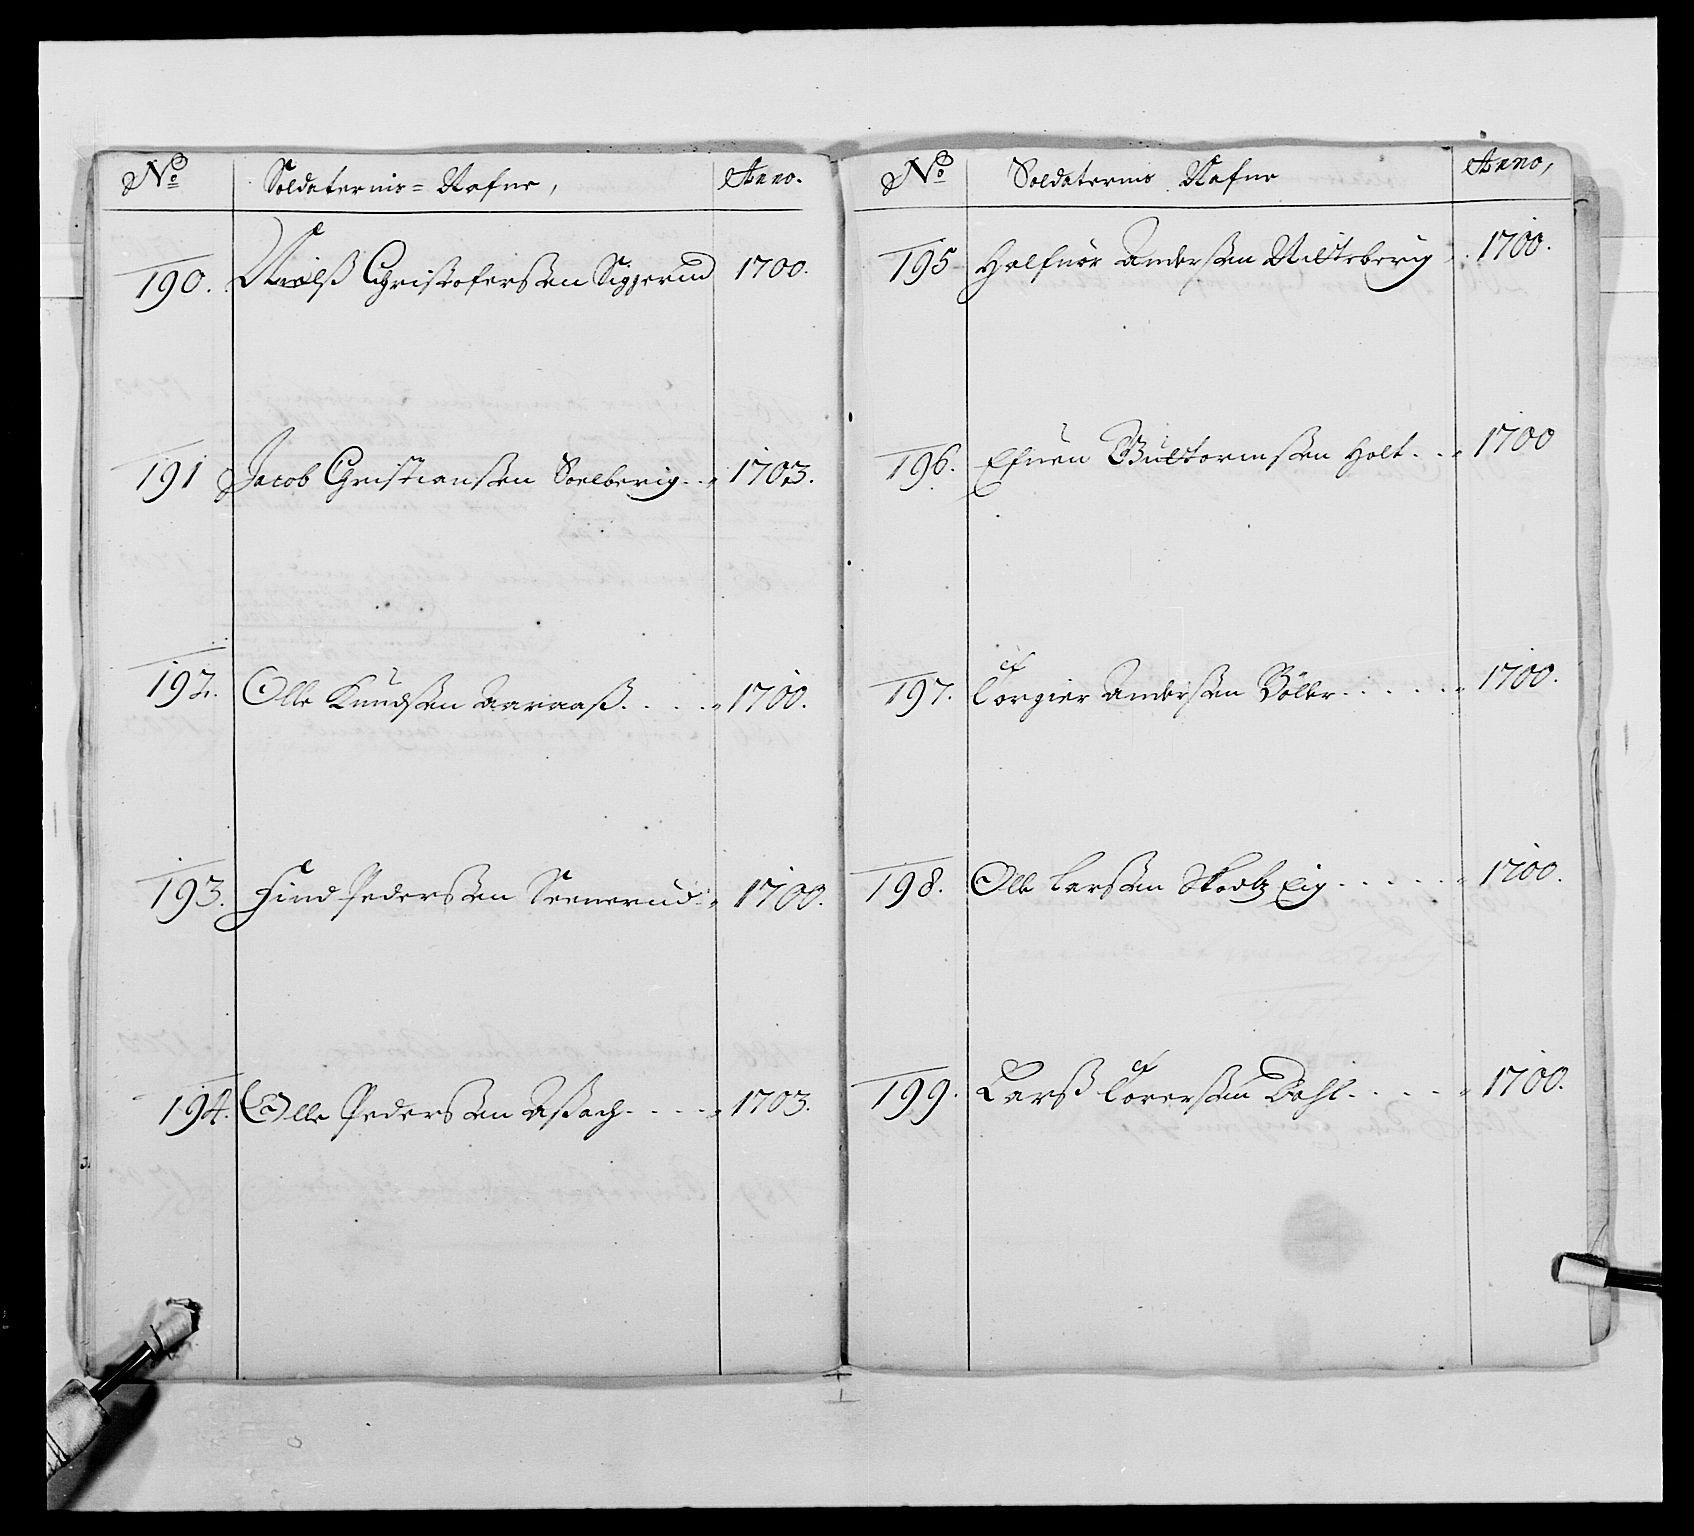 No Soldaternis = Nafne, Anno.
190. Nielß Christofersen Siggerud 1700.
191 Jacob Christiansen Soelberig. . 1703.
192. Olle Knudsen Aaraaß. . . . . 1700.
193. Find Pedersen Seenerud. 1700.
194. Olle Pedersen Aßach. . . . . 1703.
No Soldaternis Nafne Anno,
195 Halfuor Andersen 1700.
196. Efuen Guttormsen Holt. . . 1700
197. Torgier Andersen Böller. . . . . . 1700.
198. Olle Larsen Eig. . . . . . 1700.
199. Larß Toresen Dahl. . . . . 1700.